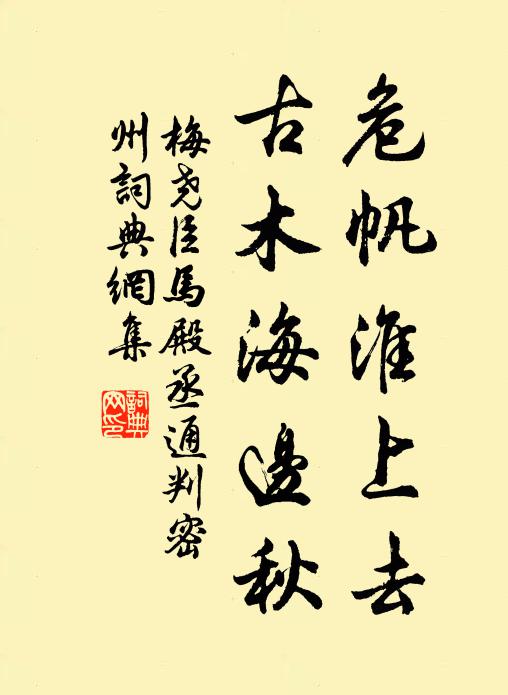 危帆淮上去
古木海邊秋
梅堯臣馬殿丞通判密
州詞典網集
詞典
网印